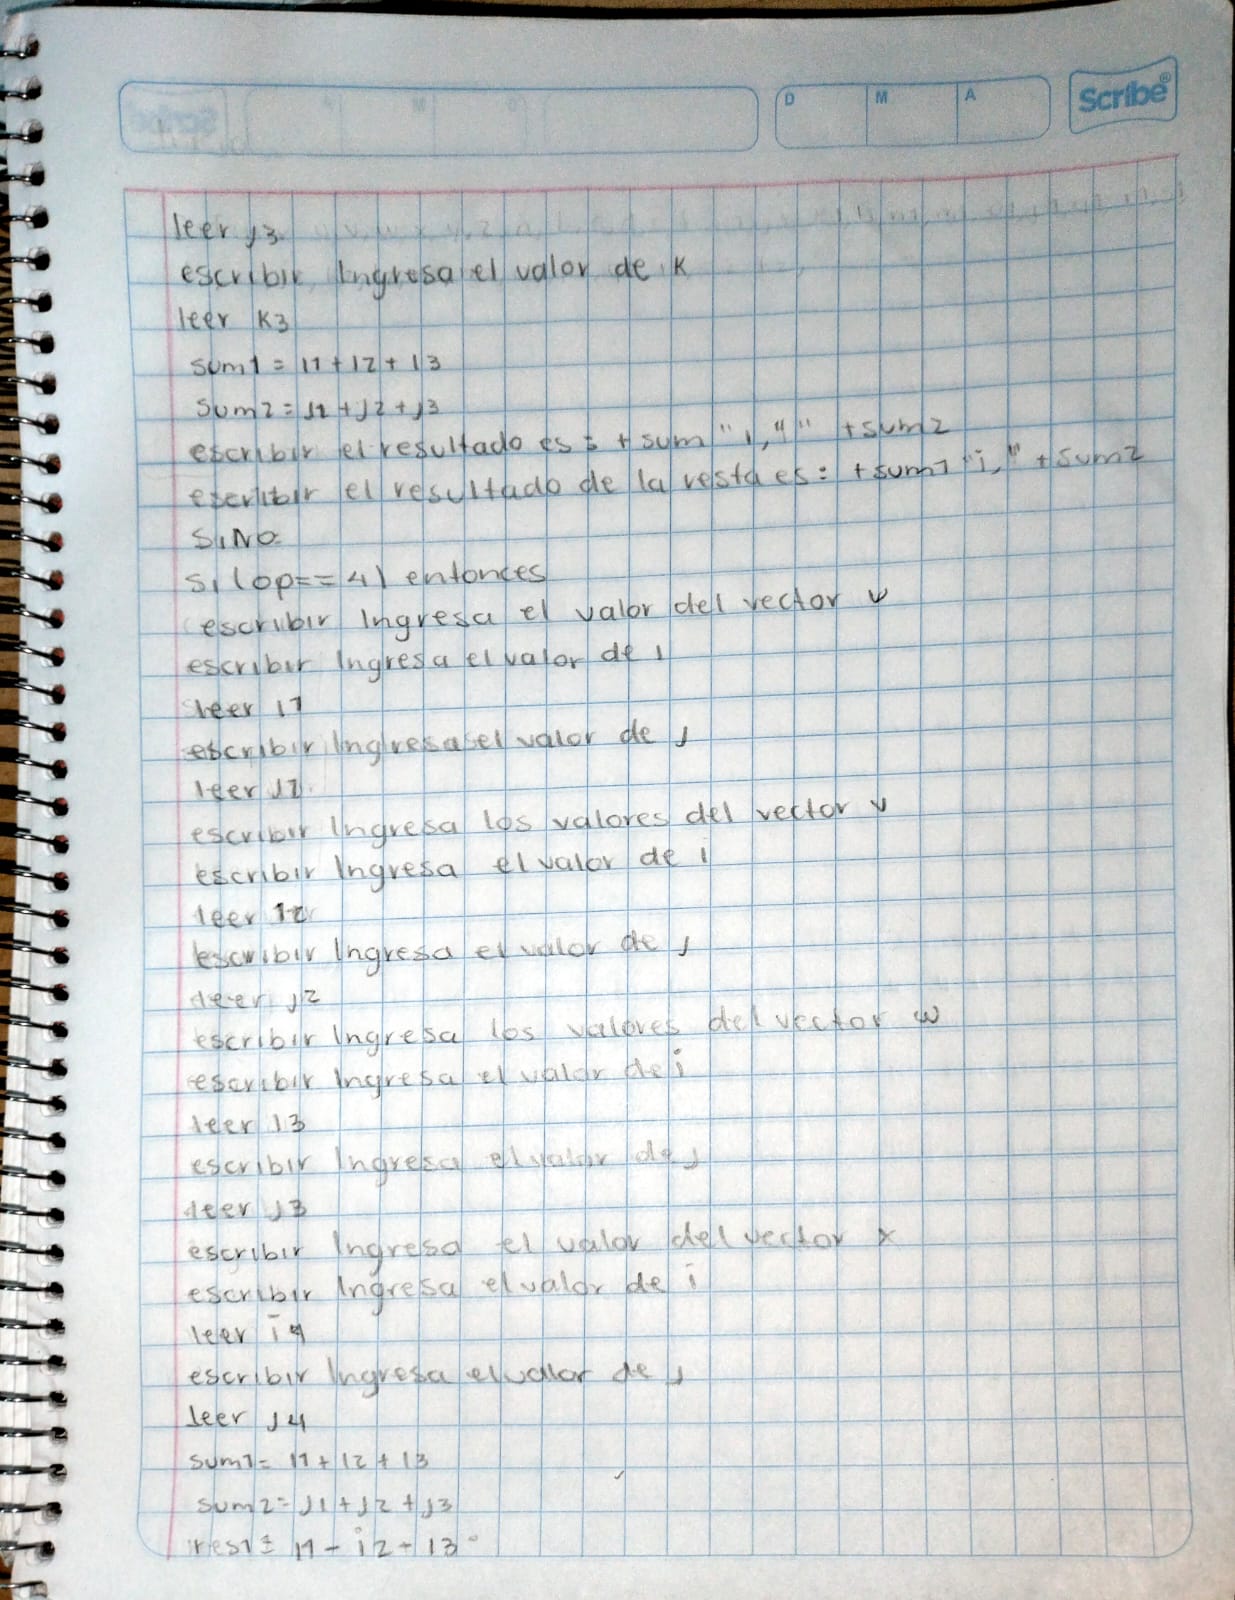 D M A Scribe®
leer j3
escribir Ingresa el valor de K
leer K3
sum1 = i1 + i2 + i3
sum2 = j1 + j2 + j3
escribir el resultado es: + sum "i," + sum2
escribir el resultado de la resta es: + sum1 "i," + sum2
SiNo
si (op == 4) entonces
escribir Ingresa el valor del vector v
escribir Ingresa el valor de i
leer i1
escribir Ingresa el valor de j
leer j1
escribir Ingresa los valores del vector v
escribir Ingresa el valor de i
leer i2
escribir Ingresa el valor de j
leer j2
escribir Ingresa los valores del vector w
escribir Ingresa el valor de i
leer i3
escribir Ingresa el valor de j
leer j3
escribir Ingresa el valor del vector x
escribir Ingresa el valor de i
leer i4
escribir Ingresa el valor de j
leer j4
sum1 = i1 + i2 + i3
sum2 = j1 + j2 + j3
res1 = i1 - i2 - i3